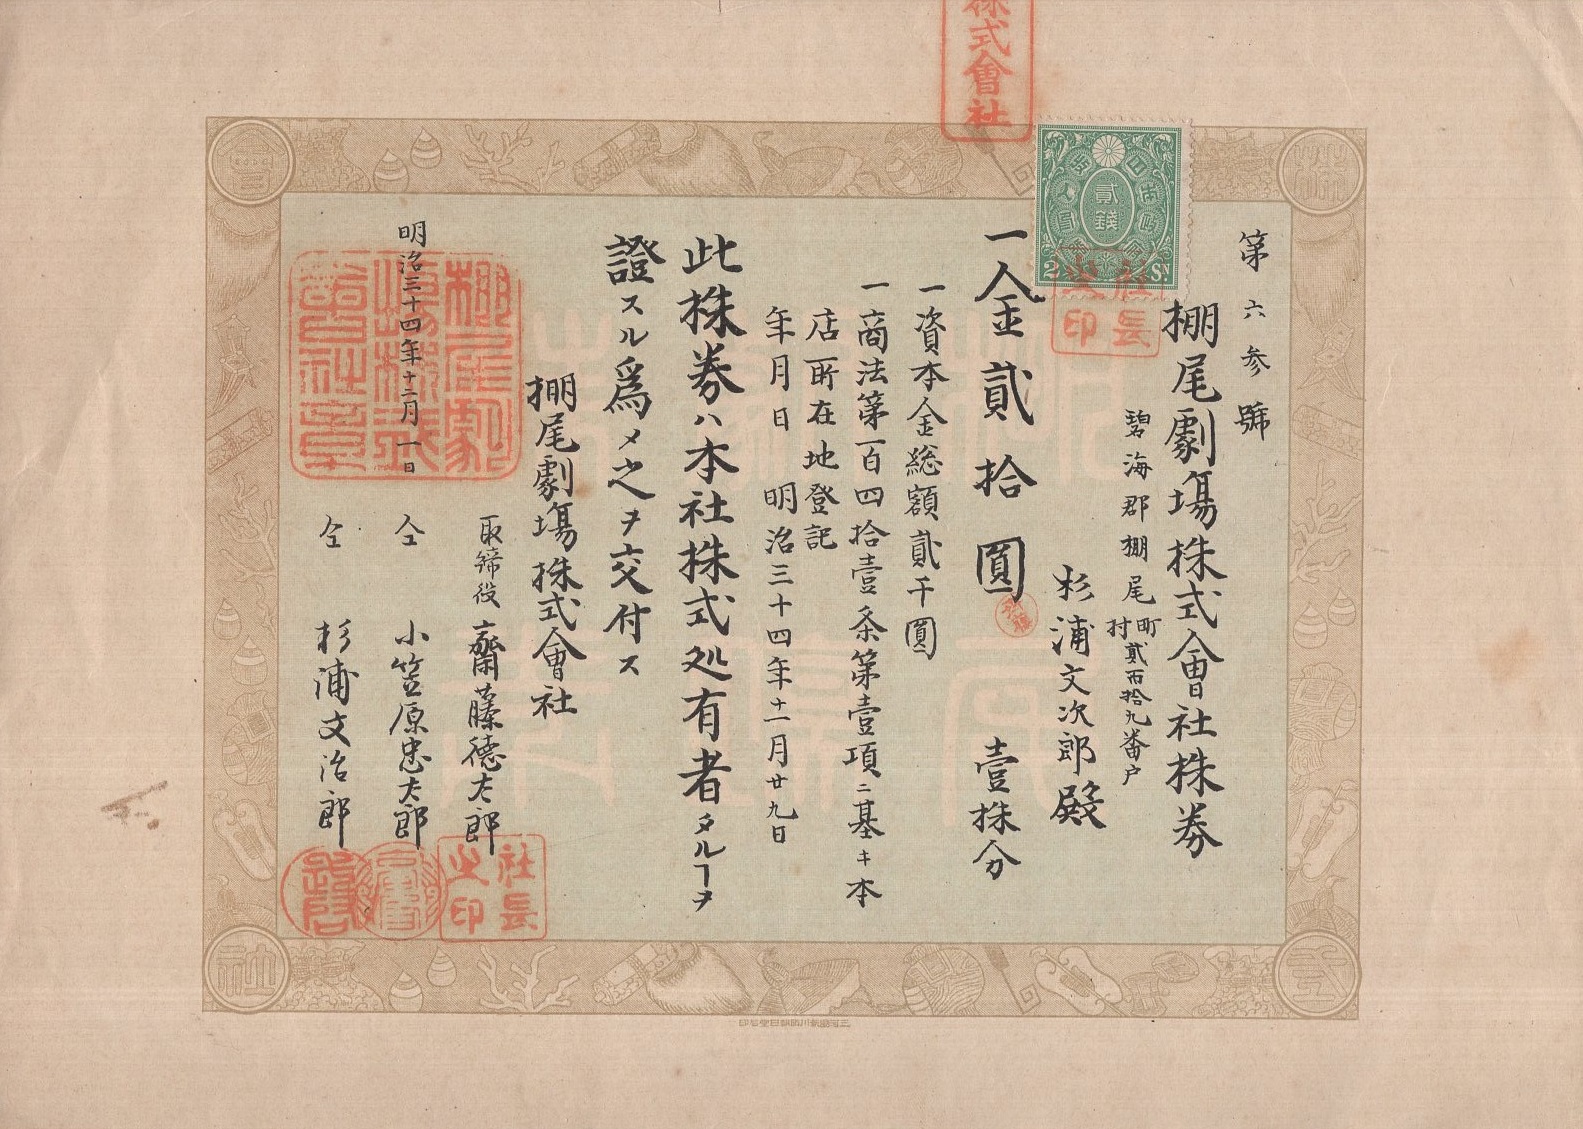 第六参號
棚尾劇塲株式會社株券
碧海郡棚尾町村貳百拾九番户
杉浦文次郎殿
一金貳拾圓 壹株分
一資本金総額貳千圓
一商法第一百四拾壹条第壹項ニ基キ本
店所在地登記
年月日 明治三十四年十一月廿九日
此株券ハ本社株式処有者タルヿヲ
證スル爲メ之ヲ交付ス
棚尾劇塲株式會社
取締役 齋藤德太郎
仝 小笠原忠太郎
仝 杉浦文治郎
明治三十四年十二月一日
株式會社
貳錢
2 Sn
社長之印
社長之印
棚尾劇
塲株式
會社章
株
式
會
社